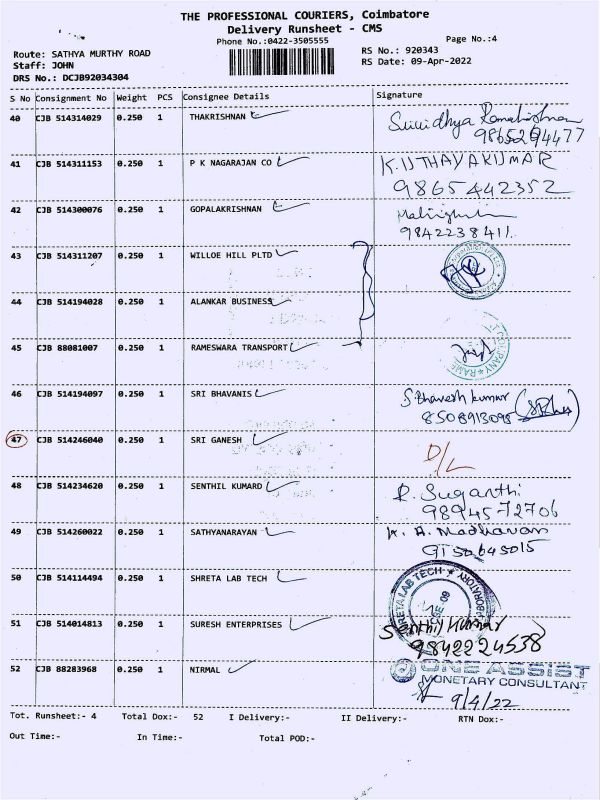 THE PROFESSIONAL COURIERS, Coimbatore
Delivery Runsheet - CMS
Phone No.:0422-3505555
Page No.:4
Route: SATHYA MURTHY ROAD
RS No.: 920343
Staff: JOHN
RS Date: 09-Apr-2022
DRS No.: DCJB92034304
S No Consignment No Weight PCS Consignee Details Signature
40 CJB 514314029 0.250 1 THAKRISHNAN
41 CJB 514311153 0.250 1 P K NAGARAJAN CO K. UTHAYAKUMAR
9865442352
42 CJB 514300076 0.250 1 GOPALAKRISHNAN
9842238411.
43 CJB 514311207 0.250 1 WILLOE HILL PLTD
44 CJB 514194028 0.250 1 ALANKAR BUSINESS
45 CJB 88081007 0.250 1 RAMESWARA TRANSPORT
46 CJB 514194097 0.250 1 SRI BHAVANIS S Bhavesh kumar
8508913098
47 CJB 514246040 0.250 1 SRI GANESH D/L
48 CJB 514234620 0.250 1 SENTHIL KUMARD R. Suganthi
98945 72706
49 CJB 514260022 0.250 1 SATHYANARAYAN K. A. Madhavan
9150645015
50 CJB 514114494 0.250 1 SHRETA LAB TECH SHRETA LAB TECH LABORATORY
51 CJB 514014813 0.250 1 SURESH ENTERPRISES Senthil Kumar
9842224538
52 CJB 88283968 0.250 1 NIRMAL ONE ASSIST
MONETARY CONSULTANT
9/4/22
Tot. Runsheet:- 4 Total Dox:- 52 I Delivery:- II Delivery:- RTN Dox:-
Out Time:- In Time:- Total POD:-